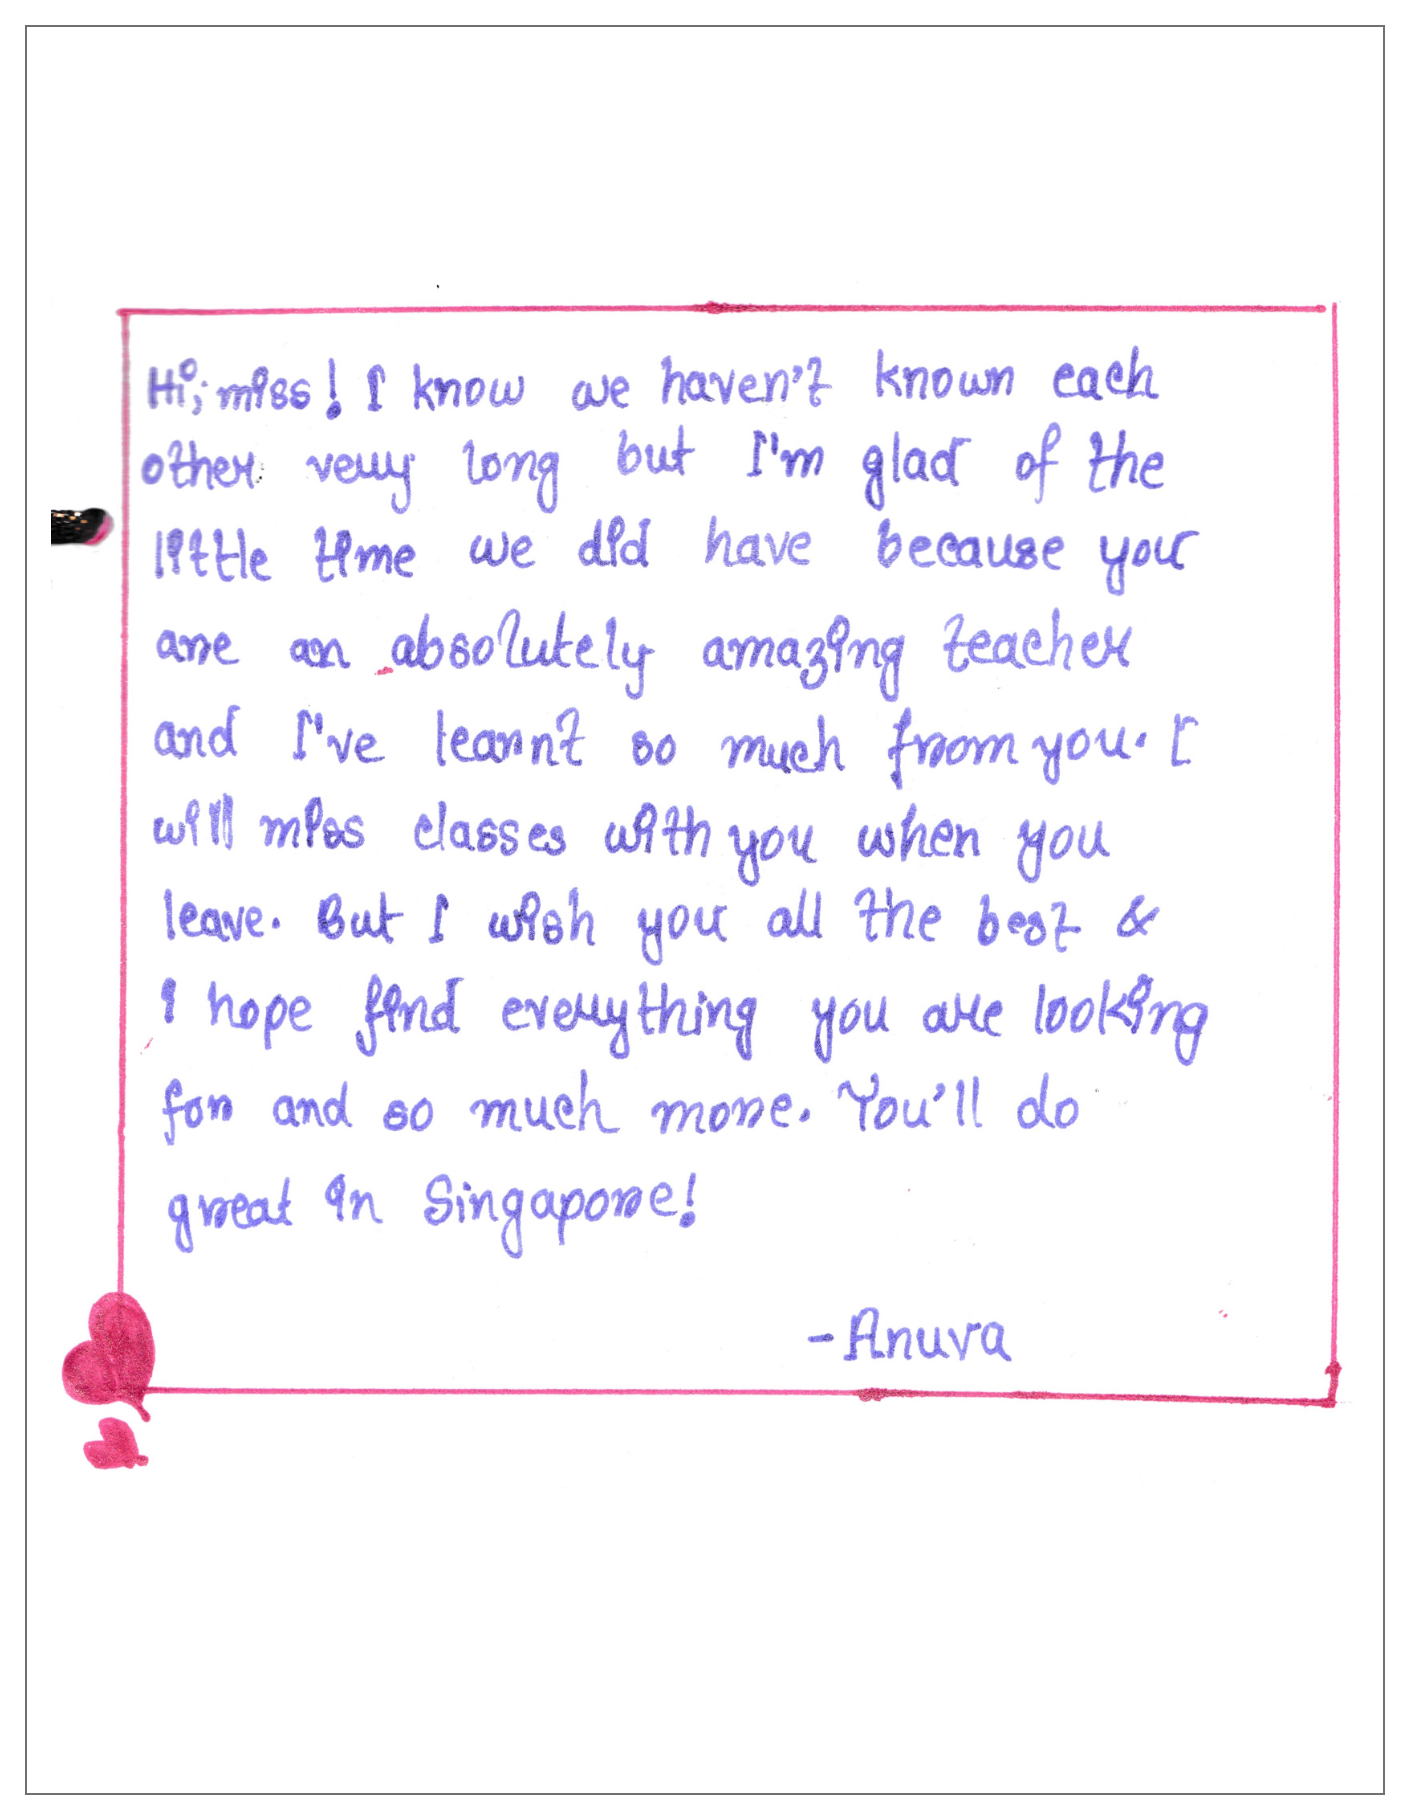 Hi, miss! I know we haven't known each
other very long but I'm glad of the
little time we did have because you
are an absolutely amazing teacher
and I've learnt so much from you. I
will miss classes with you when you
leave. But I wish you all the best &
I hope find everything you are looking
for and so much more. You'll do
great in Singapore!
-Anuva